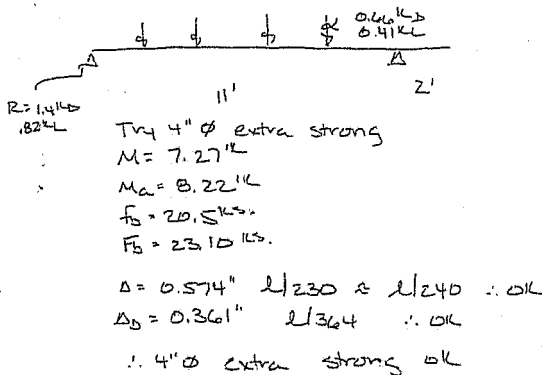 0.66ᴷD
0.41ᴷL
R=1.4ᴷD
.82ᴷL
11'
2'
Try 4"φ extra strong
M= 7.27'ᴷ
Ma= 8.22'ᴷ
fb = 20.5ᴷˢⁱ
Fb = 23.10ᴷˢⁱ
Δ= 0.574" l/230 ≈ l/240 ∴ OK
ΔD= 0.361" l/364 ∴ OK
∴ 4"φ extra strong ok